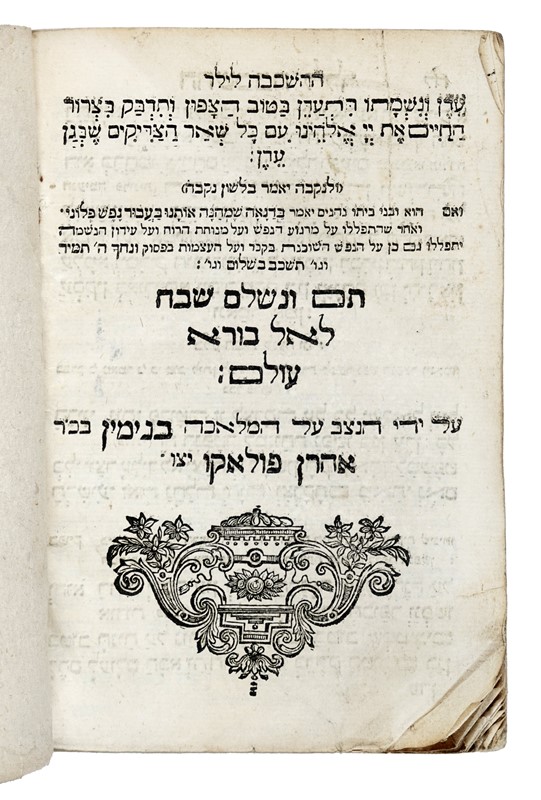 ההשכבה לילד
עֵדֶן וְנִשְׁמָתוֹ תִּתְעַדֵּן בַּטּוּב הַצָּפוּן וְתִדְבַּק בִּצְרוֹר
הַחַיִּים אֶת יְיָ אֱלֹהֵינוּ עִם כָּל שְׁאָר הַצַּדִּיקִים שֶׁבְּגַן
עֵדֶן :
(ולנקבה יאמר בלשון נקבה)
ואם הוא ובני ביתו נהנים יאמר בַּהֲנָאָה שֶׁמַּהֲנֶה אוֹתָנוּ בַּעֲבוּר נֶפֶשׁ פְּלוֹנִי
ואחר שהתפללו על מרגוע הנפש ועל מנוחת הרוח ועל עידון הנשמה
יתפללו גם כן על הנפש השוכנת בקבר ועל העצמות בפסוק ונחך ה' תמיד
וגו' תשכב בשלום וגו' :
תם ונשלם שבח
לאל בורא
עולם :
על ידי הנצב על המלאכה בנימין בכ'ר
אהרן פולאקו יצו'